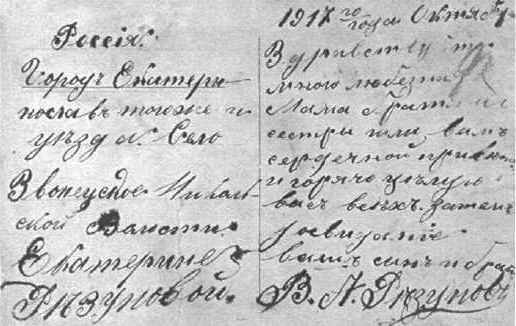 Россія.
Городъ Екатери-
нославъ тогоже
уѣзда. Село
Звонецкое Николь-
ской Волости
Екатерине
Рязуновой.
1917 го года Октябр
Здравствуйте
много любезная
Мама братья и
сестры шлю вамъ
сердечной привет
и горячо целую
васъ всѣхъ. затемъ
досвиданіе
вашъ сынъ и братъ